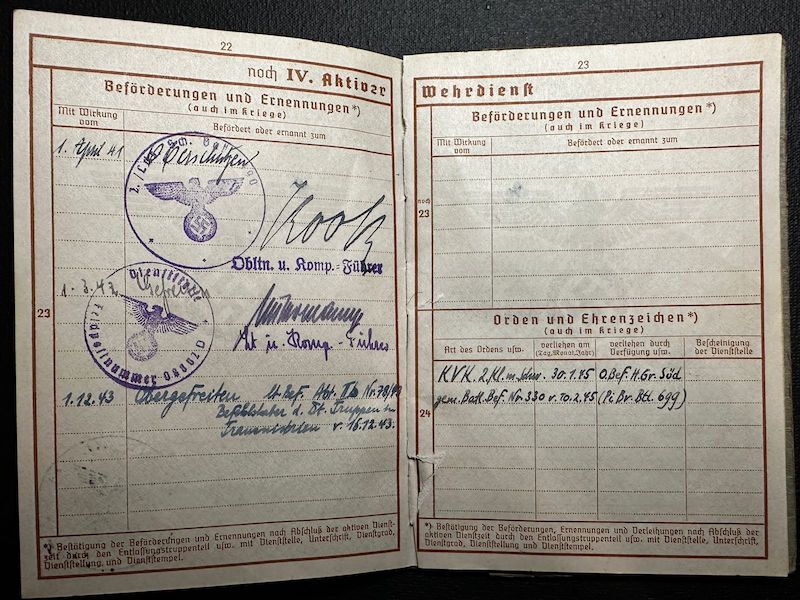 22
noch IV. Aktiver
Beförderungen und Ernennungen*)
(auch im Kriege)
Mit Wirkung vom
Befördert oder ernannt zum
1. April 41
Obltn. u. Komp.-Führer
Dienststelle
Feldpostnummer
23
Lt. u. Komp.-Führer
1.12.43 Obergefreiten lt. Bef. Abt. IIb Nr. 78/43
Befehlshaber d. Dt. Truppen in
v. 16.12.43.
*) Bestätigung der Beförderungen und Ernennungen nach Abschluß der aktiven Dienst-
zeit durch den Entlassungstruppenteil usw. mit Dienststelle, Unterschrift, Dienstgrad,
Dienststellung und Dienststempel.
23
Wehrdienst
Beförderungen und Ernennungen*)
(auch im Kriege)
Mit Wirkung vom
Befördert oder ernannt zum
noch
23
Orden und Ehrenzeichen*)
(auch im Kriege)
Art des Ordens usw.
verliehen am
(Tag, Monat, Jahr)
verliehen durch
Verfügung usw.
Bescheinigung
der Dienststelle
K.V.K. 2.Kl. m. Schw. 30.1.45 O.Bef. H.Gr. Süd
gem. Batl. Bef. Nr. 330 v. 10.2.45 (Pi. Br. Btl. 699)
24
*) Bestätigung der Beförderungen, Ernennungen und Verleihungen nach Abschluß der
aktiven Dienstzeit durch den Entlassungstruppenteil usw. mit Dienststelle, Unterschrift,
Dienstgrad, Dienststellung und Dienststempel.